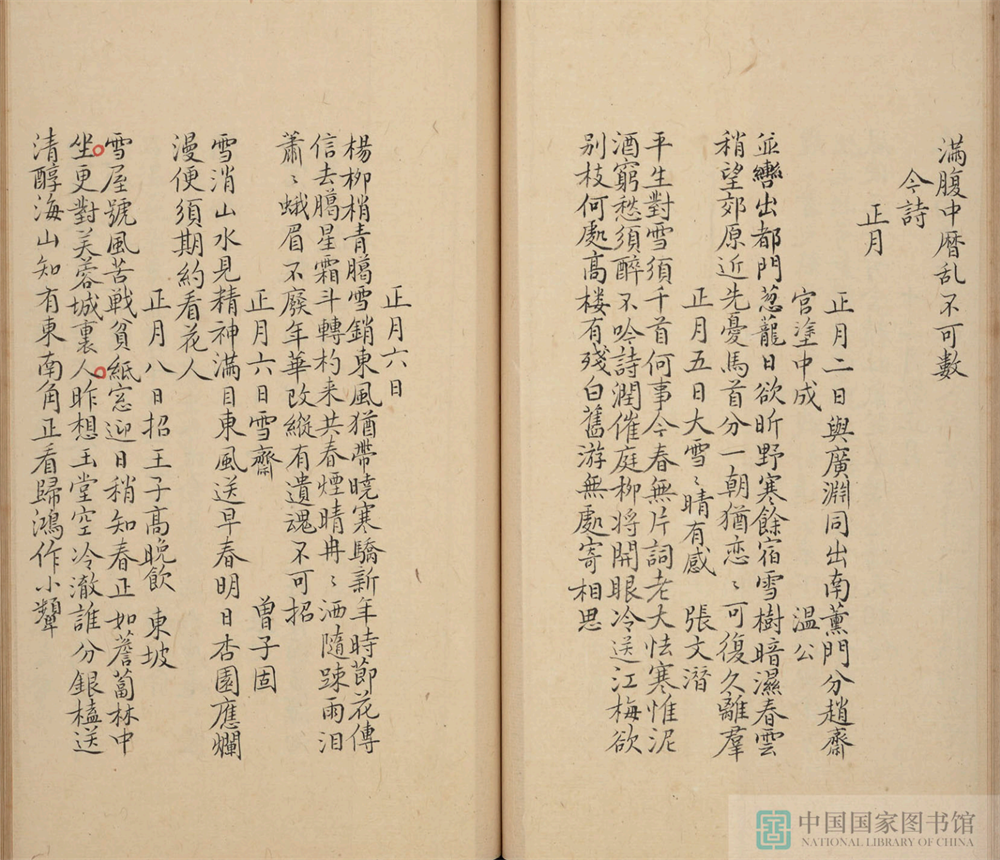 满腹中曆乱不可數
今詩
正月
正月二日與廣淵同出南薰門分趙齋
宫塗中成　温公
並轡出都門葱蘢日欲昕野寒餘宿雪樹暗濕春雲
稍望郊原近先憂馬首分一朝猶恋〻可復久離羣
正月五日大雪〻晴有感　張文潛
平生對雪須千首何事今春無片詞老大怯寒惟泥
酒窮愁須醉不吟詩潤催庭柳将開眼冷送江梅欲
别枝何處髙楼有殘白舊游無處寄相思
正月六日
楊柳梢青臈雪銷東風猶帶曉寒驕新年時節花傳
信去臈星霜斗轉杓来共春煙晴冉〻洒隨踈雨泪
蕭〻蛾眉不廢年華改縱有遺魂不可招
正月六日雪齋　曾子固
雪消山水見精神满目東風送早春明日杏園應爛
漫便須期約看花人
正月八日招王子髙晚飲　東坡
雪屋號風苦戰貧紙窓迎日稍知春正如薝蔔林中
坐更對芙蓉城裏人昨想玉堂空冷澈誰分銀榼送
清醇海山知有東南角正看歸鴻作小顰
中国国家图书馆
NATIONAL LIBRARY OF CHINA